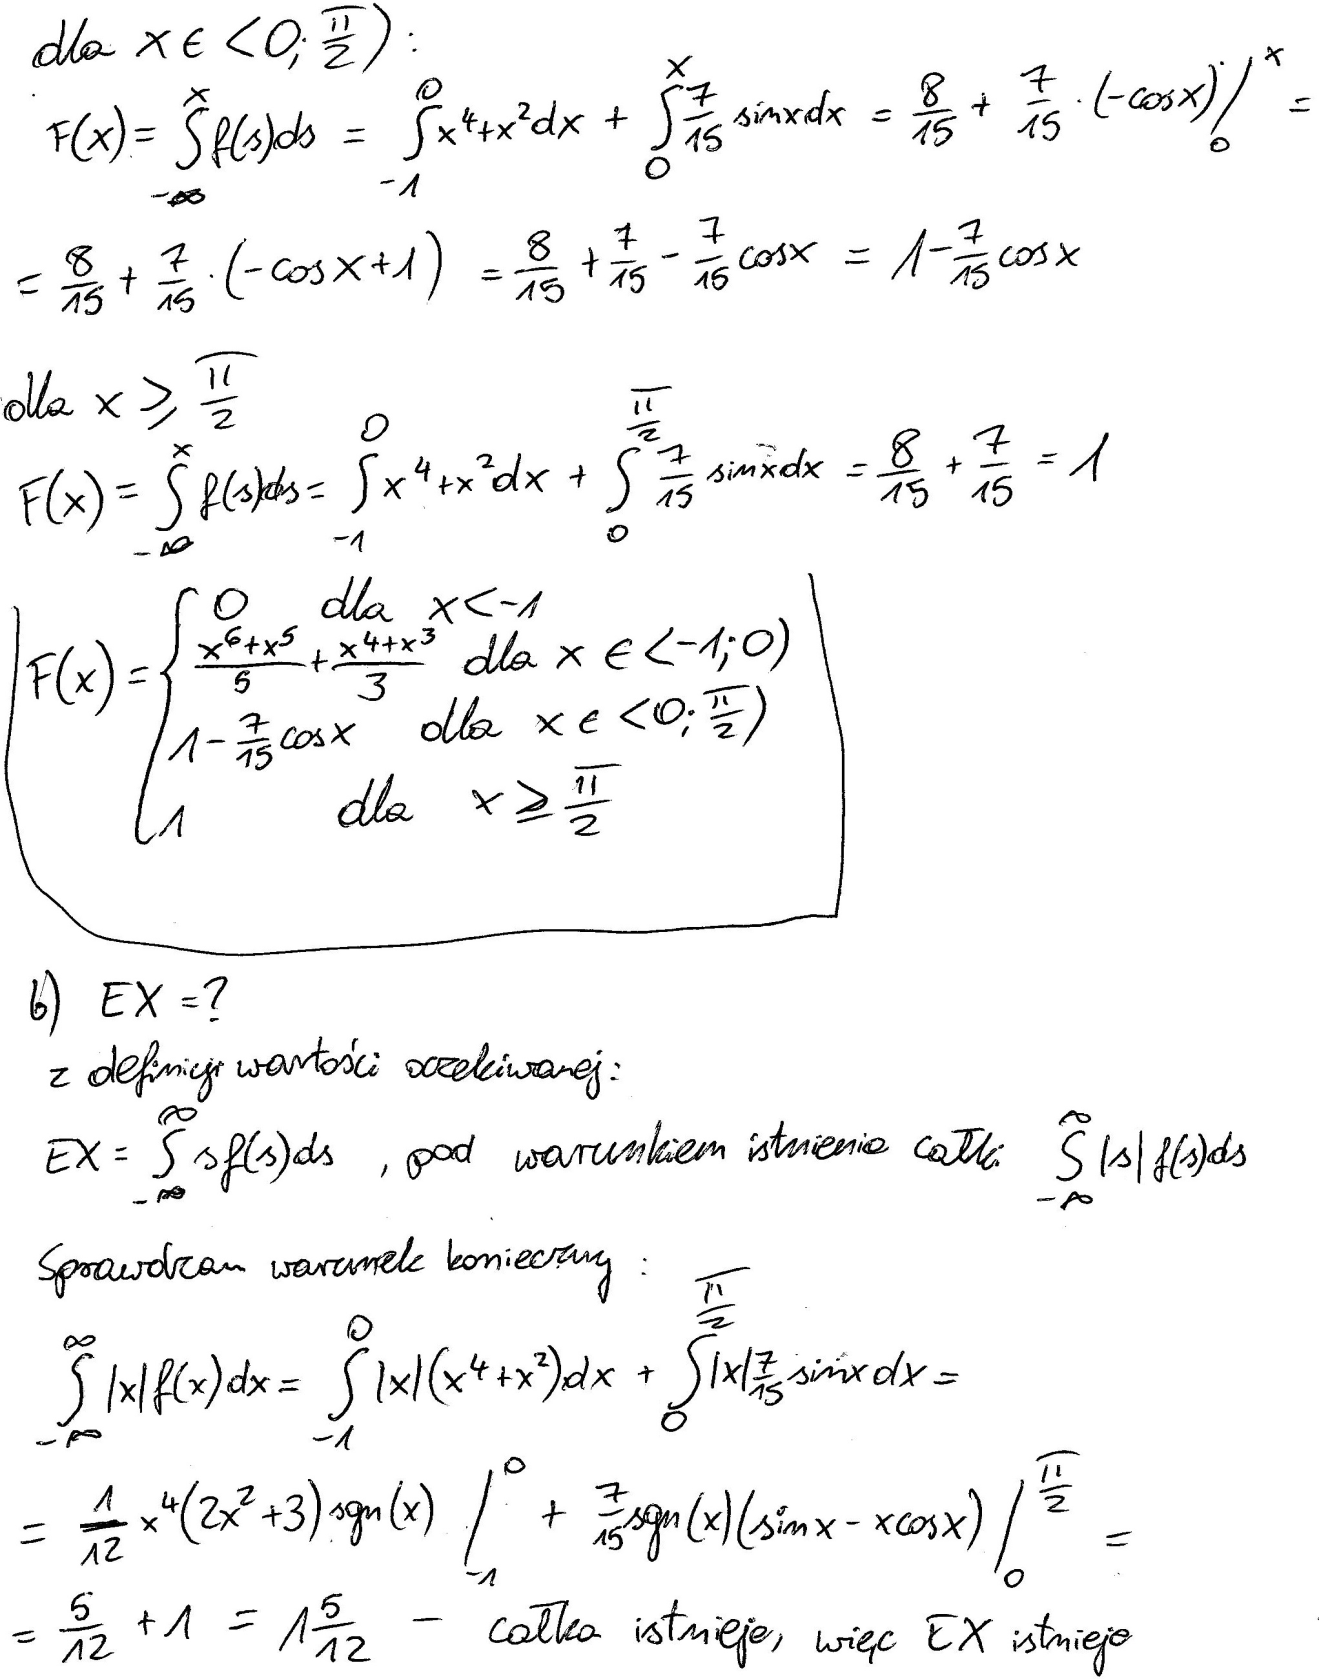 dla x ∈ <0; π/2):
F(x) = ∫_{-∞}^{x} f(s)ds = ∫_{-1}^{0} x⁴+x²dx + ∫_{0}^{x} 7/15 sinxdx = 8/15 + 7/15 · (-cosx) /_{0}^{x} =
= 8/15 + 7/15 · (-cosx+1) = 8/15 + 7/15 - 7/15 cosx = 1 - 7/15 cosx
dla x ≥ π/2
F(x) = ∫_{-∞}^{x} f(s)ds = ∫_{-1}^{0} x⁴+x²dx + ∫_{0}^{π/2} 7/15 sinxdx = 8/15 + 7/15 = 1
F(x) = { 0 dla x<-1
(x⁶+x⁵)/5 + (x⁴+x³)/3 dla x ∈ <-1;0)
1 - 7/15 cosx dla x ∈ <0; π/2)
1 dla x ≥ π/2
b) EX = ?
z definicji wartości oczekiwanej:
EX = ∫_{-∞}^{∞} sf(s)ds , pod warunkiem istnienia całki ∫_{-∞}^{∞} |s| f(s)ds
Sprawdzam warunek konieczny:
∫_{-∞}^{∞} |x|f(x)dx = ∫_{-1}^{0} |x|(x⁴+x²)dx + ∫_{0}^{π/2} |x| 7/15 sinxdx =
= 1/12 x⁴(2x²+3)sgn(x) /_{-1}^{0} + 7/15 sgn(x)(sinx-xcosx) /_{0}^{π/2} =
= 5/12 + 1 = 1 5/12 - całka istnieje, więc EX istnieje